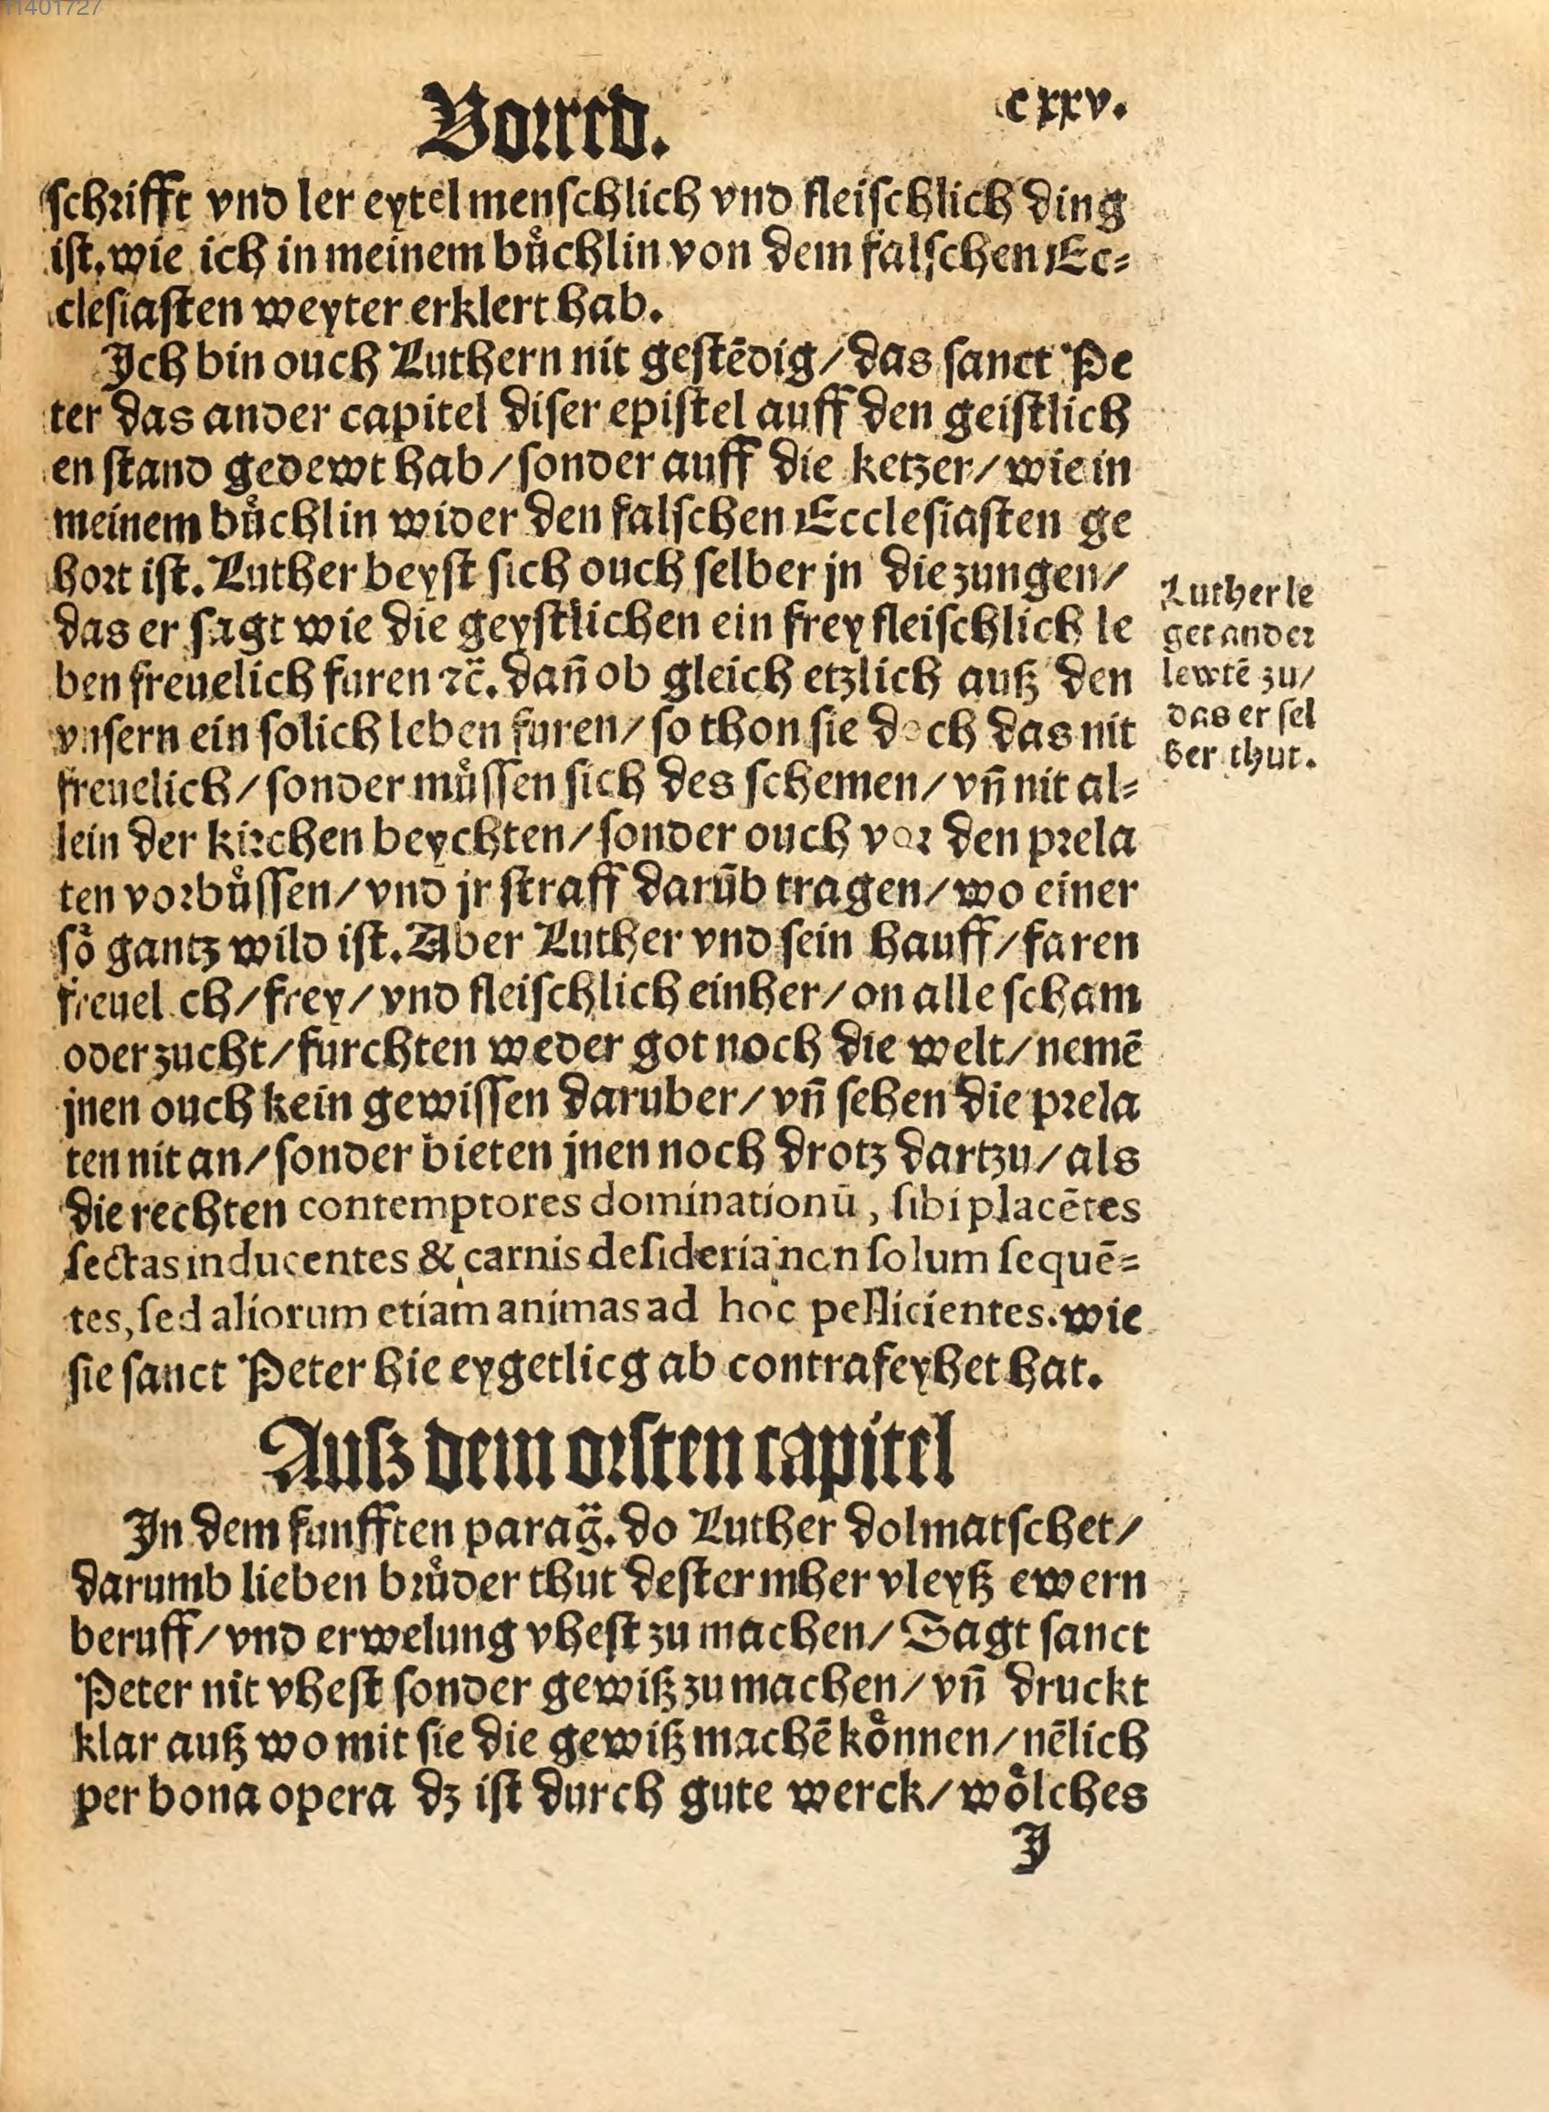 11401727
Vorred.
cxxv.
ſchrifft vnd ler eytel menſchlich vnd fleiſchlich ding
iſt. wie ich in meinem bůchlin von dem falſchen Ec⸗
cleſiaſten weyter erklert hab.
Ich bin ouch Luthern nit geſtēdig/ das ſanct Pe
ter das ander capitel diſer epiſtel auff den geiſtlich
en ſtand gedewt hab/ ſonder auff die ketzer/ wie in
meinem bůchlin wider den falſchen Eccleſiaſten ge
hort iſt. Luther beyſt ſich ouch ſelber jn die zungen/
das er ſagt wie die geyſtlichen ein frey fleiſchlich le
ben freuelich furen ⁊c̃. dañ ob gleich etzlich auß den
vnſern ein ſolich leben furen/ ſo thon ſie doch das nit
freuelich/ ſonder můſſen ſich des ſchemen/ vñ nit al⸗
lein der kirchen beychten/ ſonder ouch vor den prela
ten vorbůſſen/ vnd jr ſtraff darūb tragen/ wo einer
ſo gantz wild iſt. Aber Luther vnd ſein hauff/ faren
freuel ch/ frey/ vnd fleiſchlich einher/ on alle ſcham
oder zucht/ furchten weder got noch die welt/ nemē
jnen ouch kein gewiſſen daruber/ vñ ſehen die prela
ten nit an/ ſonder bieten jnen noch drotz dartzu/ als
die rechten contemptores dominationū, ſibi placētes
ſectas inducentes & carnis deſideria non ſolum ſequē⸗
tes, ſed aliorum etiam animas ad hoc pellicientes. wie
ſie ſanct Peter hie eygetlicg ab contrafeyhet hat.
Luther le
get ander
lewtē zu/
das er ſel
ber thut.
Auſz dem orſten capitel
In dem funfften parag̃. do Luther dolmatſchet/
darumb lieben brůder thut deſter mher vleyß ewern
beruff/ vnd erwelung vheſt zu machen/ Sagt ſanct
Peter nit vheſt ſonder gewiß zu machen/ vñ druckt
klar auß wo mit ſie die gewiß machē koͤnnen/ nēlich
per bona opera dz iſt durch gute werck/ woͤlches
J